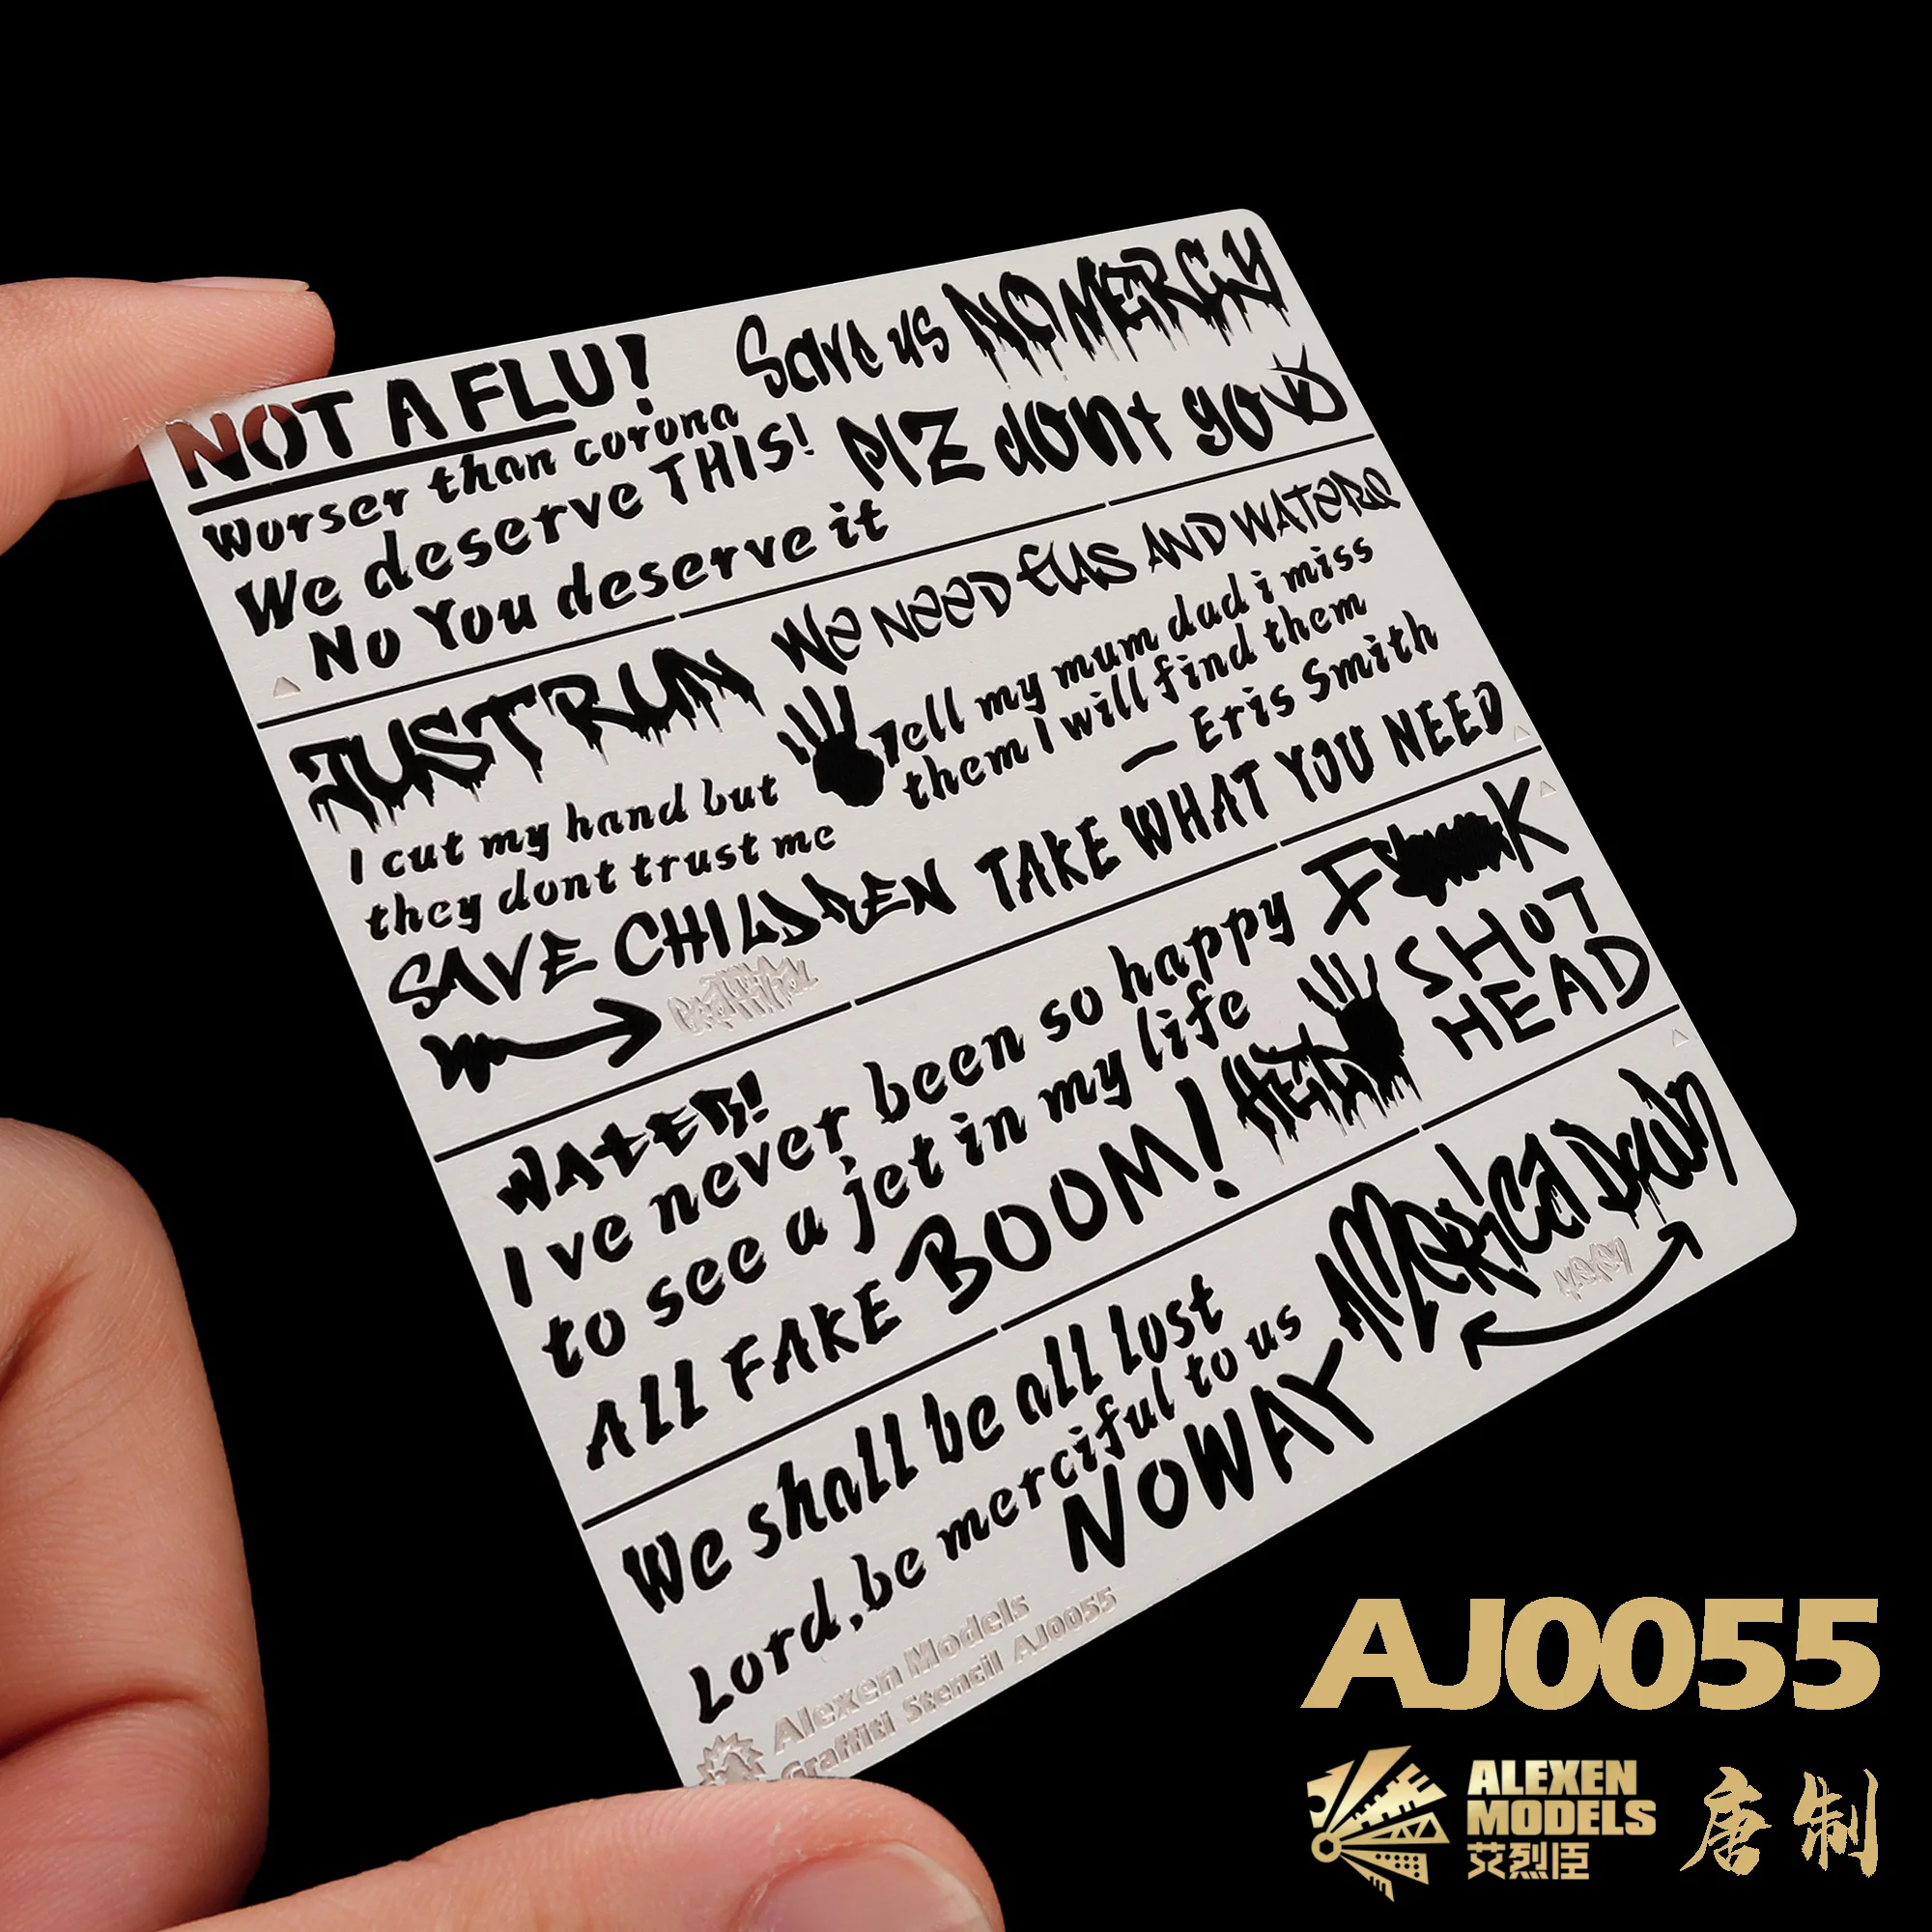 NOT A FLU!
Save us
NO MERCY
Worser than corona
We deserve THIS!
No You deserve it
PlZ dont go
JUST RUN
We NeeD
AND WATERS
I cut my hand but
they dont trust me
Tell my mum dad i miss
them I will find them
— Eris Smith
SAVE CHILDREN
TAKE WHAT YOU NEED
WATER!
I ve never been so happy
to see a jet in my life
F
K
SHOT
HEAD
ALL FAKE
BOOM!
We shall be all lost
Lord,be merciful to us
NOWAY
AMERica Down
Alexen Models
Graffiti Stencil AJ0055
AJ0055
ALEXEN
MODELS
艾烈臣
唐制